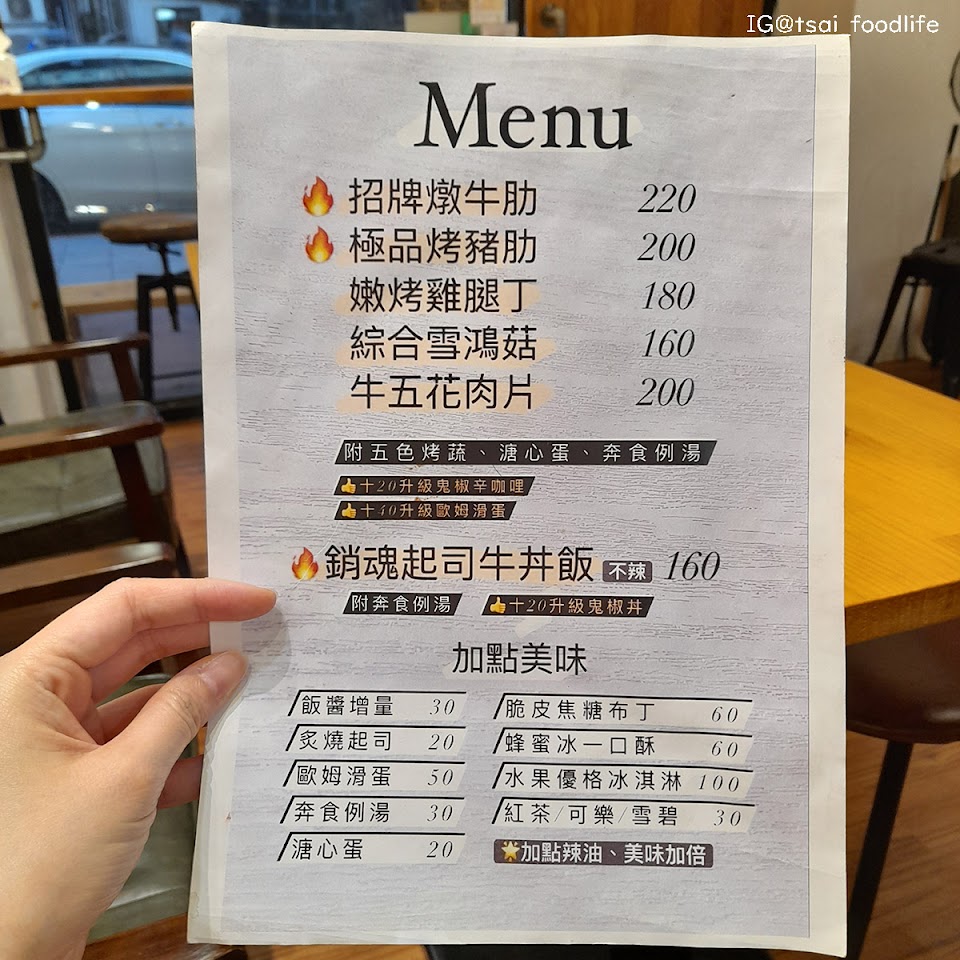 IG@tsai_foodlife
Menu
招牌燉牛肋 220
極品烤豬肋 200
嫩烤雞腿丁 180
綜合雪鴻菇 160
牛五花肉片 200
附五色烤蔬、溏心蛋、奔食例湯
+20升級鬼椒辛咖哩
+40升級歐姆滑蛋
銷魂起司牛丼飯 不辣 160
附奔食例湯 +20升級鬼椒丼
加點美味
飯醬增量 30
炙燒起司 20
歐姆滑蛋 50
奔食例湯 30
溏心蛋 20
脆皮焦糖布丁 60
蜂蜜冰一口酥 60
水果優格冰淇淋 100
紅茶/可樂/雪碧 30
加點辣油、美味加倍